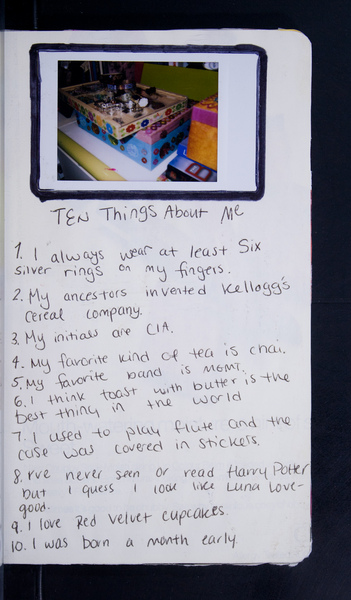 TEN Things About Me
1. I always wear at least Six
silver rings on my fingers.
2. My ancestors invented Kellogg's
cereal company.
3. My initials are CIA.
4. My favorite kind of tea is chai.
5. My favorite band is MGMT.
6. I think toast with butter is the
best thing in the world
7. I used to play flute and the
case was covered in stickers.
8. I've never seen or read Harry Potter
but I guess I look like Luna Love-
good.
9. I love Red Velvet cupcakes.
10. I was born a month early